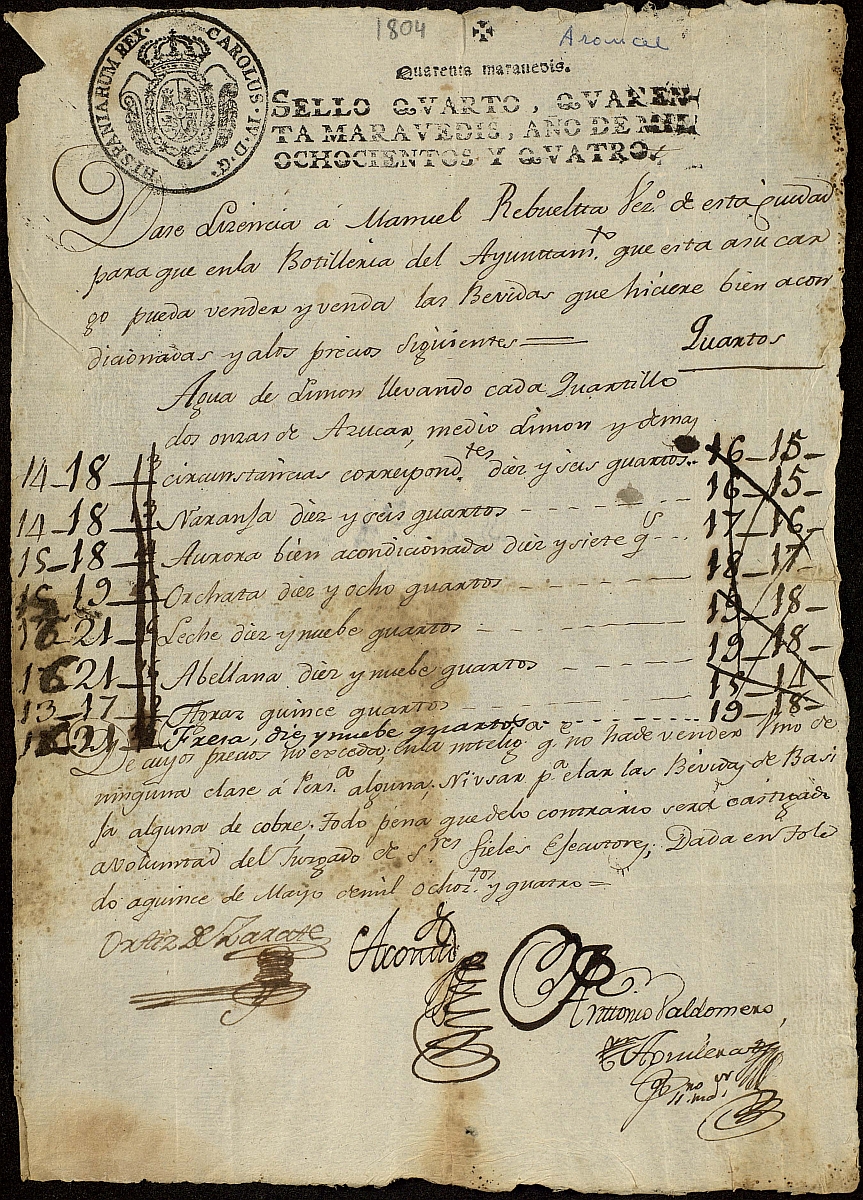 1804
Arancel
HISPANIARUM REX. CAROLUS IV D. G.
Quarenta maravedis.
SELLO QVARTO, QVAREN-
TA MARAVEDIS, AÑO DE MIL
OCHOCIENTOS Y QVATRO.
Dase Lizencia á Manuel Rebueltta Vez.º de esta Ciudad
para que en la Botilleria del Ayunttam.to que esta a su car
go pueda vender y venda las Bevidas que hiciere bien acon
dicionadas y a los precios siguientes = Quartos
Agua de Limon llevando cada Quartillo
dos onzas de Azucar, medio Limon y demas
14-18-13 circunstancias correspond.tes diez y seis quartos.. 16-15-
14-18-13 Naranja diez y seis quartos 16-15-
15-18-14 Aurora bien acondicionada diez y siete q.s 17-16-
15-19-15 Orchata diez y ocho quartos 18-17-
16-21- Leche diez y nuebe quartos 19-18-
16-21-15 Abellana diez y nuebe quartos 19-18-
13-17-12 Agraz quince quartos 15-14-
21- Fresa, diez y nuebe quartos 19-18-
De cuyos precios no exceda, en la intelig.a q.e no ha de vender Vino de
ninguna clase á Pers.a alguna, Ni usar p.a elar las Bevidas de Basi
ja alguna de cobre, todo pena que de lo contrario será castigado
a voluntad del Juzgado de S.res fieles Executores; Dada en Tole
do a quince de Mayo de mil ochoz.tos y quatro =
Ortiz de Zarate
Antonio Baldomero
Aguilera